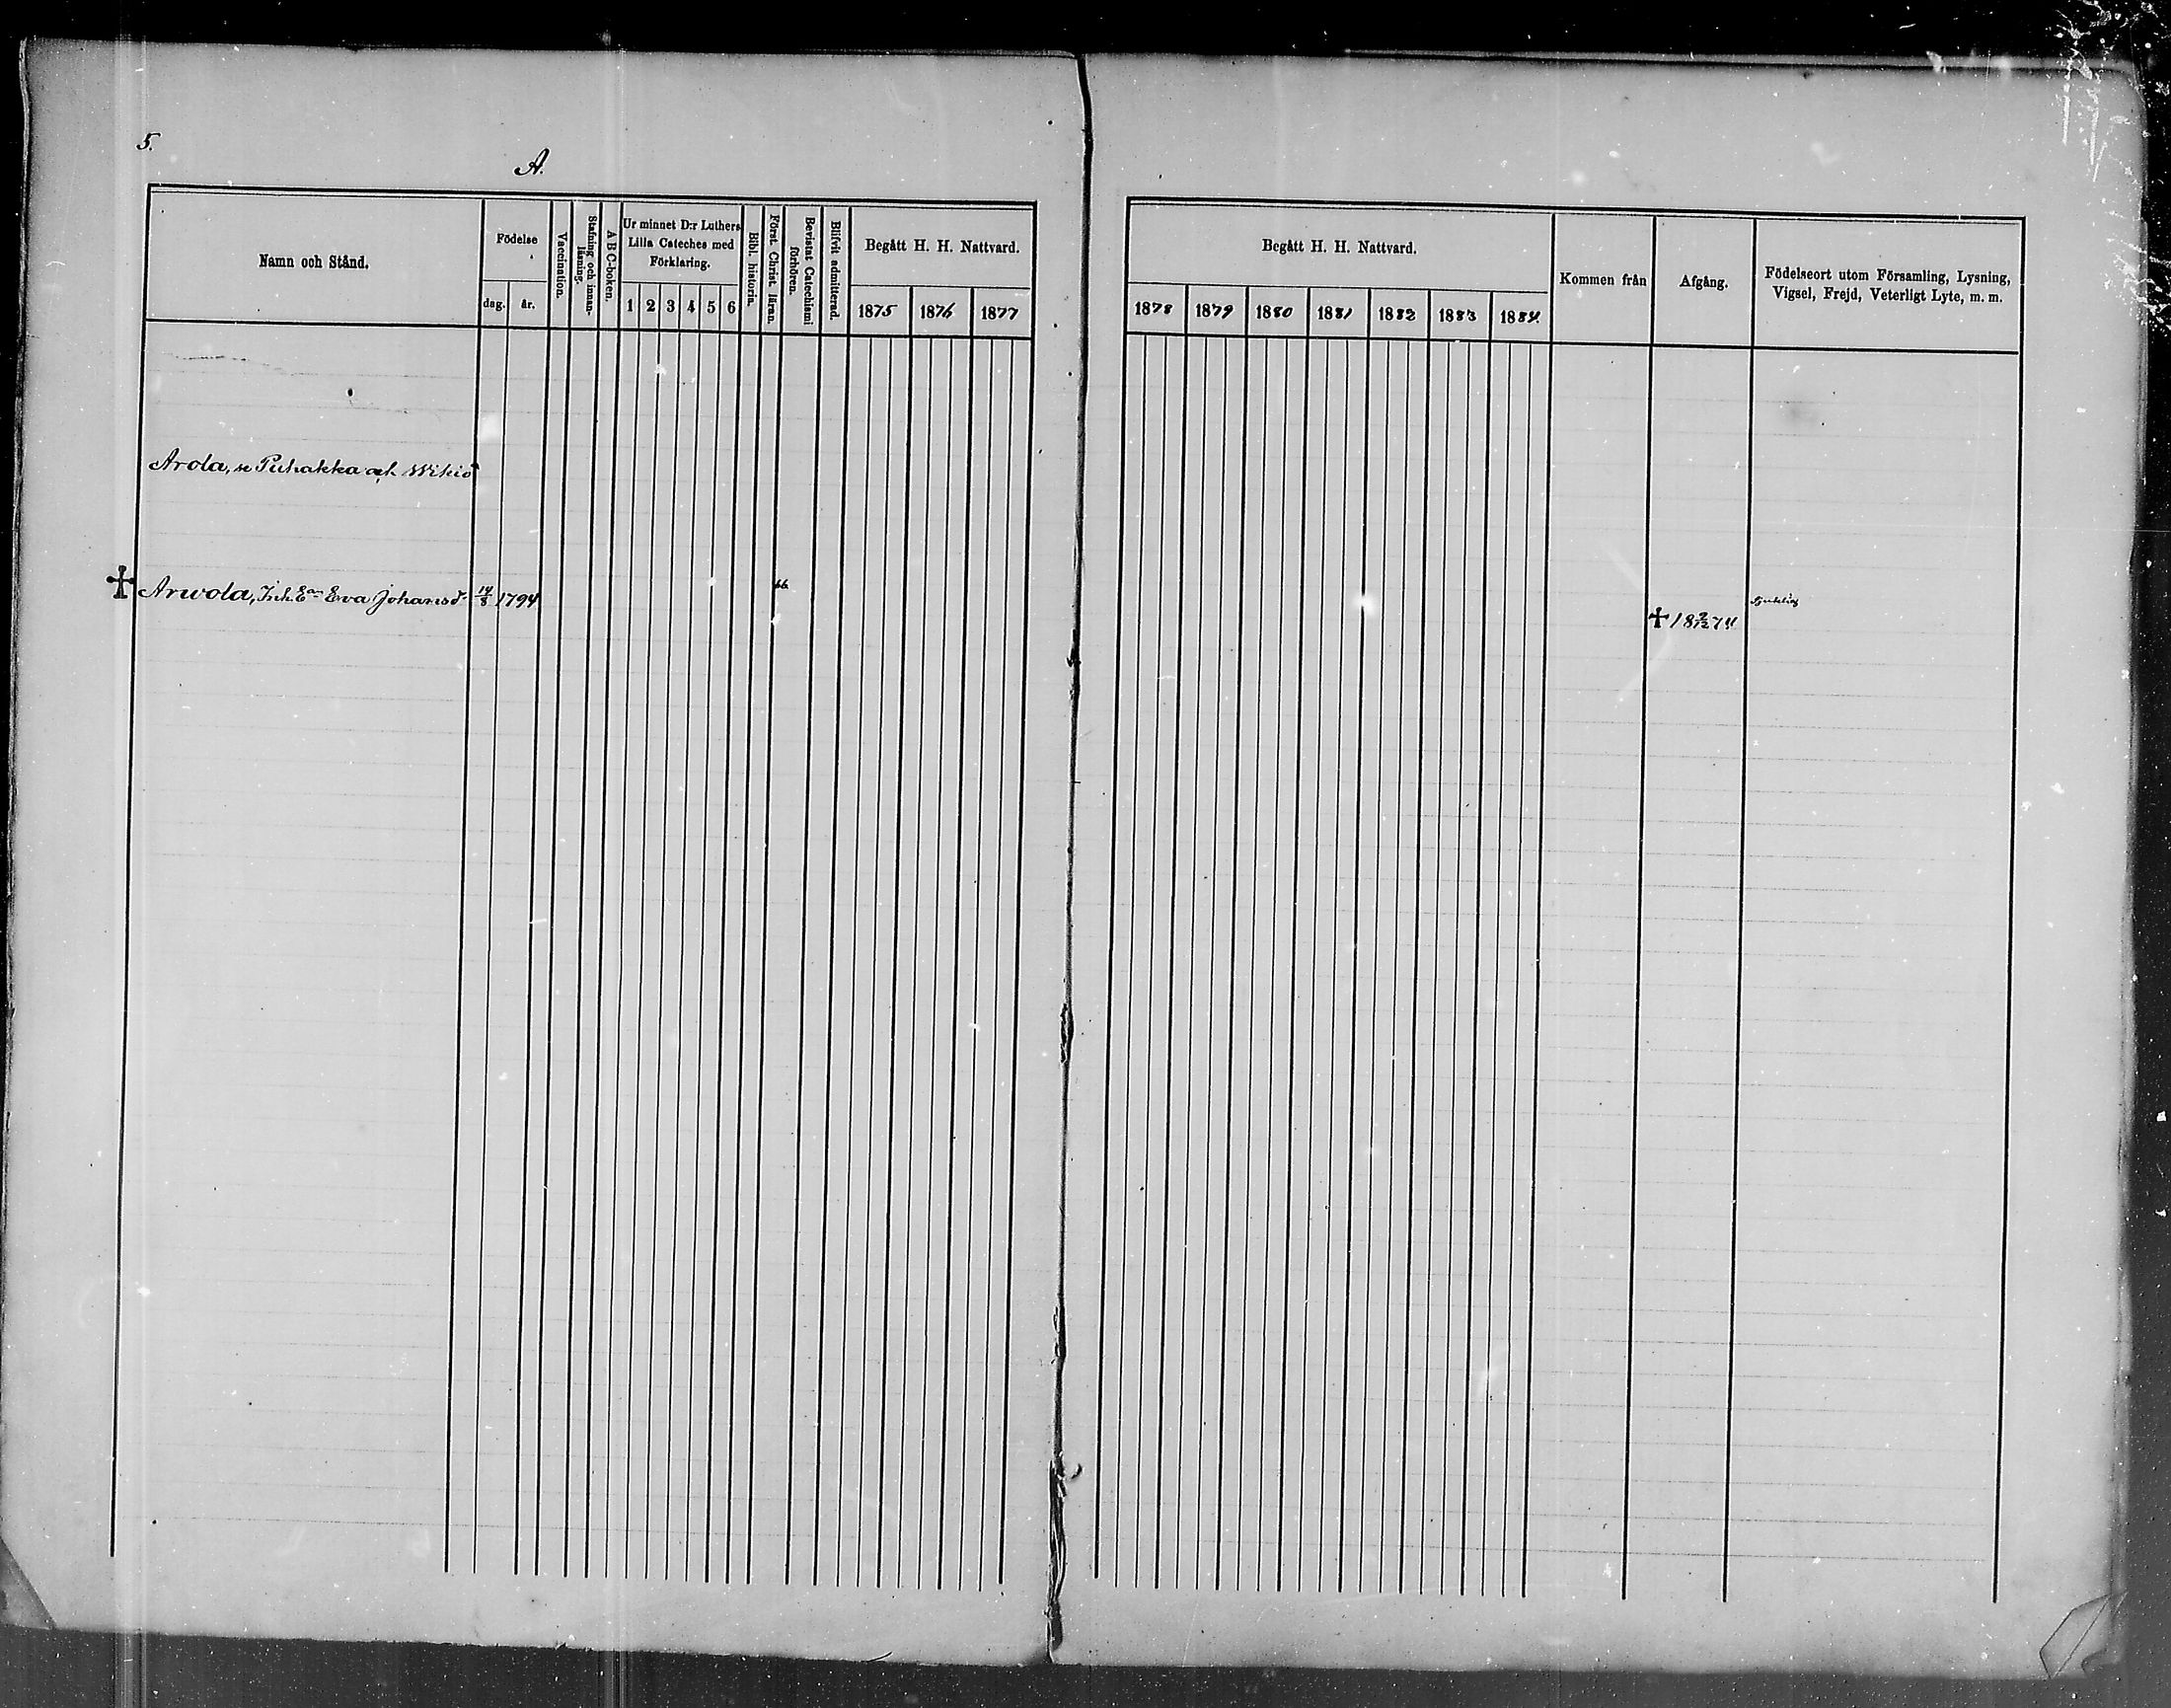 5.
A.
Namn och Stånd.
Födelse
dag.
år.
Vaccination.
Stafning och innan-
läsning.
A B C-boken.
Ur minnet D:r Luthers
Lilla Cateches med
Förklaring.
1 2 3 4 5 6
Bibl. historia.
Först. Christ. läran.
Bevistat Catechismi
förhören.
Blifvit admitterad.
Begått H. H. Nattvard.
1875 1876 1877
Begått H. H. Nattvard.
1878 1879 1880 1881 1882 1883 1884
Kommen från
Afgång.
Födelseort utom Församling, Lysning,
Vigsel, Frejd, Veterligt Lyte, m. m.
Arola, se Puhakka och Wikiö
Arwola, Inh. Ea Eva Johansd. 14/8 1794
sjuklig